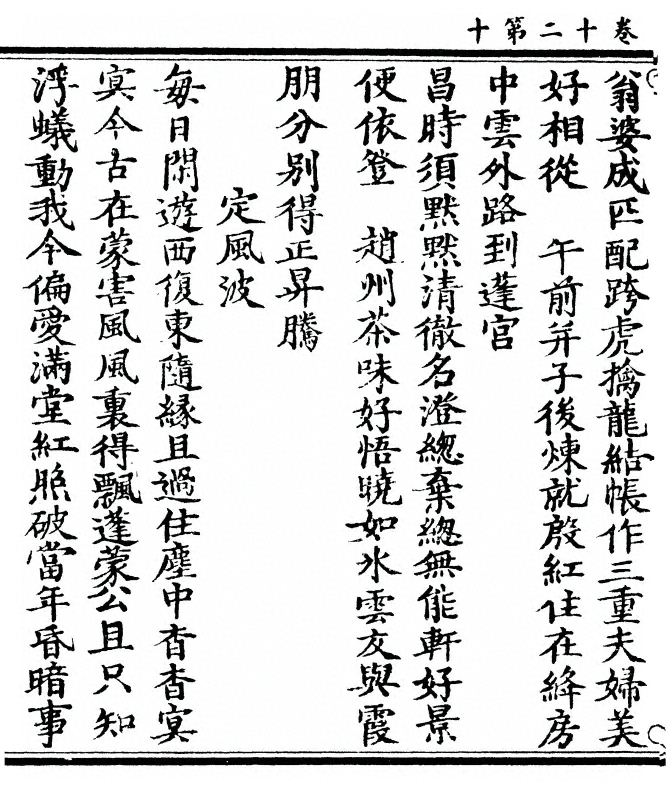 卷十二第十
翁婆成匹配跨虎擒龍結帳作三重夫婦美
好相從　午前并子後煉就殷紅住在絳房
中雲外路到蓬宮
昌時須黙黙清徹名澄緫棄緫無能軒好景
便依登　趙州茶味好悟曉如氷雲友與霞
朋分别得正昇騰
定風波
每日閑遊西復東隨緣且過住塵中杳杳㝠
㝠今古在蒙害風風裏得飄蓬蒙公且只知
浮蟻動我今偏愛滿堂紅照破當年昏暗事